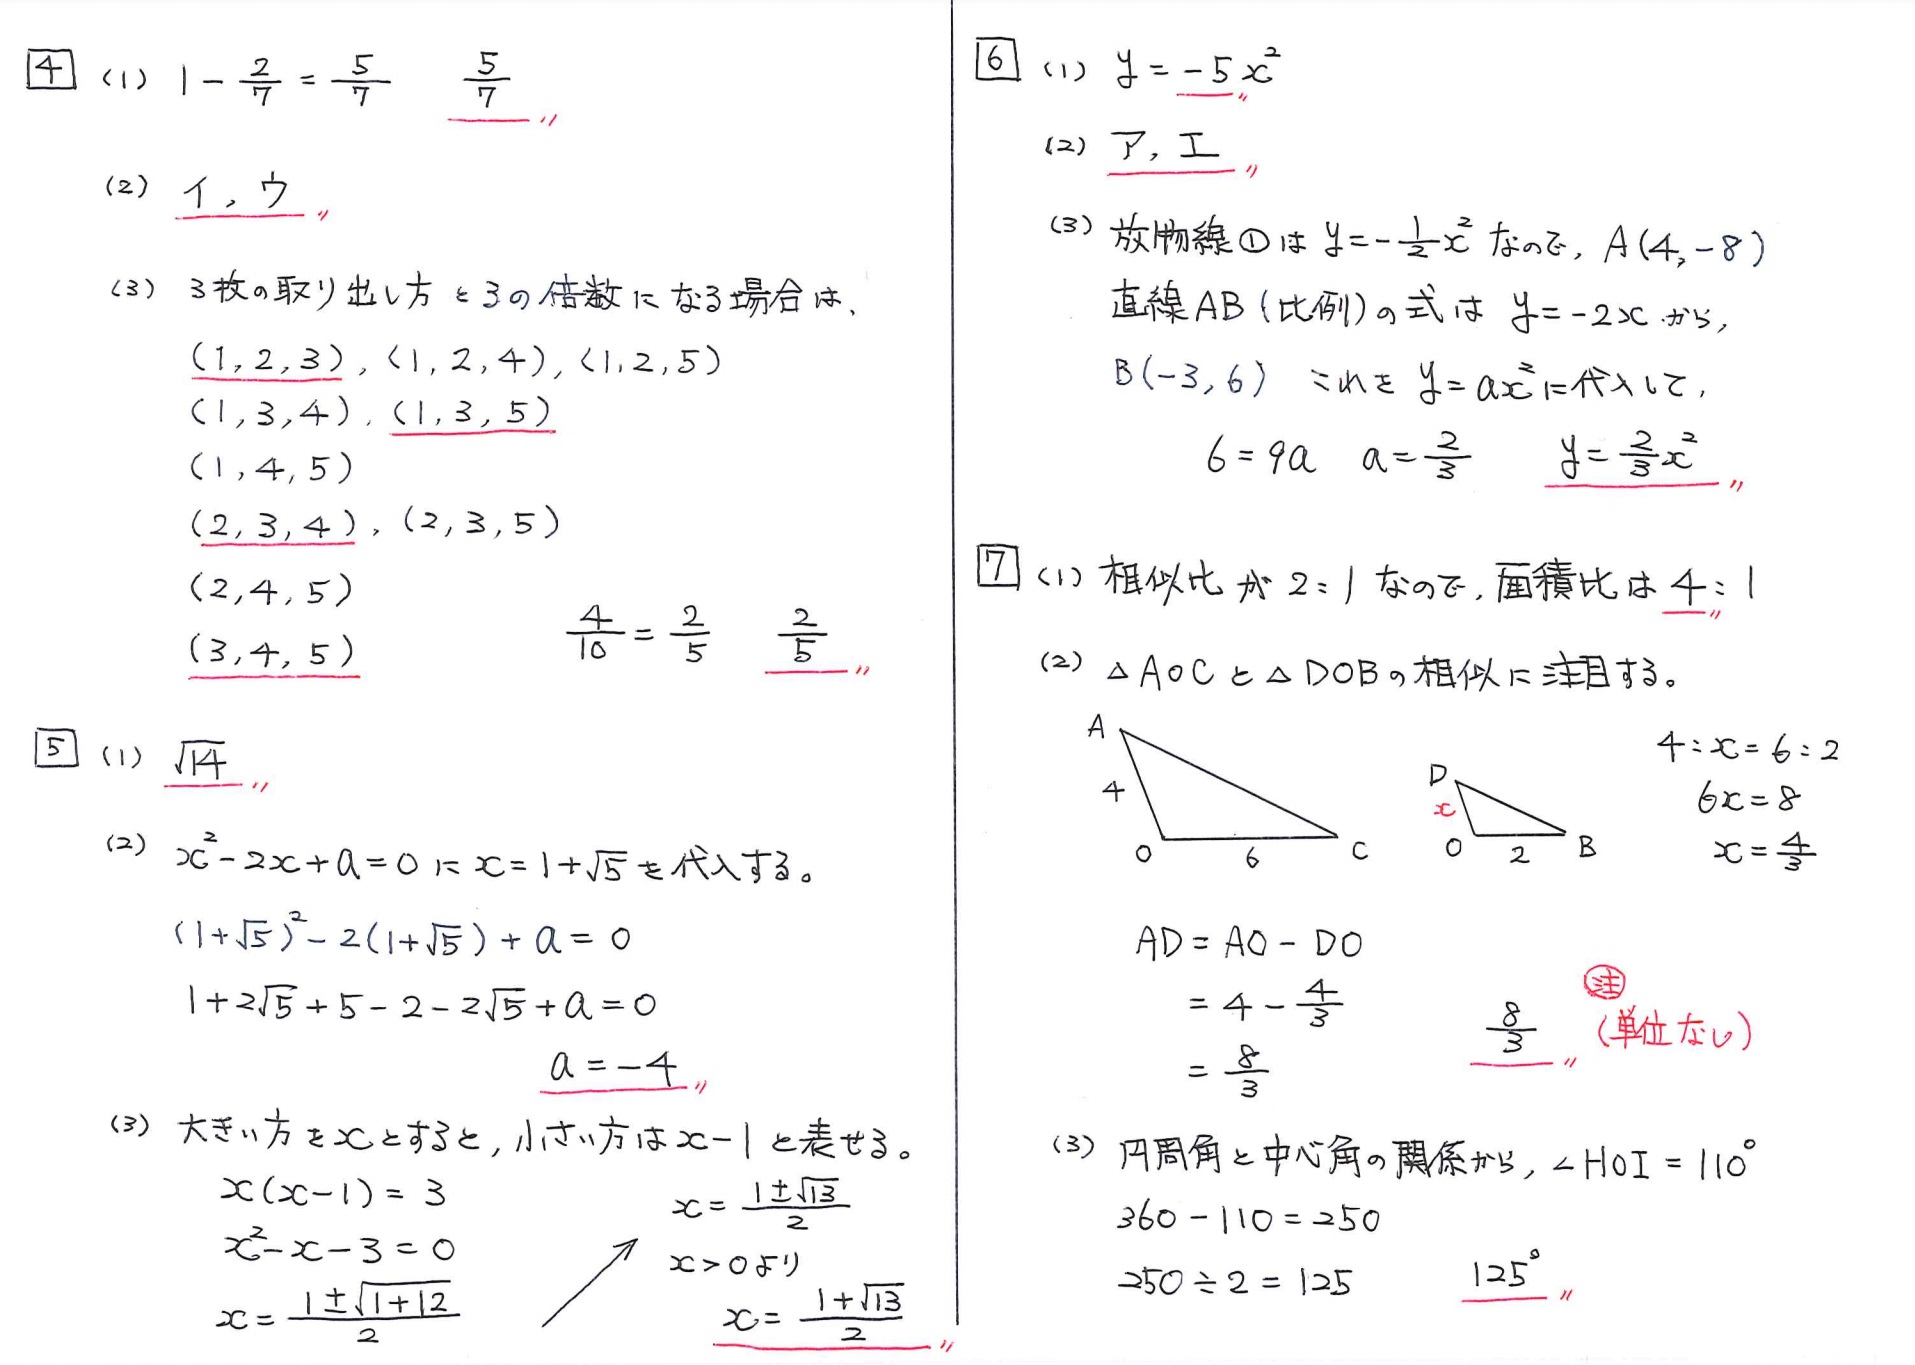 4 (1) 1 - 2/7 = 5/7 5/7
(2) イ, ウ
(3) 3枚の取り出し方と3の倍数になる場合は、
(1, 2, 3), (1, 2, 4), (1, 2, 5)
(1, 3, 4), (1, 3, 5)
(1, 4, 5)
(2, 3, 4), (2, 3, 5)
(2, 4, 5)
(3, 4, 5)
4/10 = 2/5 2/5
5 (1) √14
(2) x² - 2x + a = 0 に x = 1 + √5 を代入する。
(1 + √5)² - 2(1 + √5) + a = 0
1 + 2√5 + 5 - 2 - 2√5 + a = 0
a = -4
(3) 大きい方をxとすると, 小さい方は x - 1 と表せる。
x(x - 1) = 3
x² - x - 3 = 0
x = (1 ± √(1 + 12))/2
x = (1 ± √13)/2
x > 0 より
x = (1 + √13)/2
6 (1) y = -5x²
(2) ア, エ
(3) 放物線①は y = -1/2 x² なので, A(4, -8)
直線AB(比例)の式は y = -2x から,
B(-3, 6) これを y = ax² に代入して,
6 = 9a a = 2/3 y = 2/3 x²
7 (1) 相似比が 2 : 1 なので, 面積比は 4 : 1
(2) △AOCと△DOBの相似に注目する。
A
4
O 6 C
D
x
O 2 B
4 : x = 6 : 2
6x = 8
x = 4/3
AD = AO - DO
= 4 - 4/3
= 8/3
8/3
注
(単位なし)
(3) 円周角と中心角の関係から, ∠HOI = 110°
360 - 110 = 250
250 ÷ 2 = 125 125°